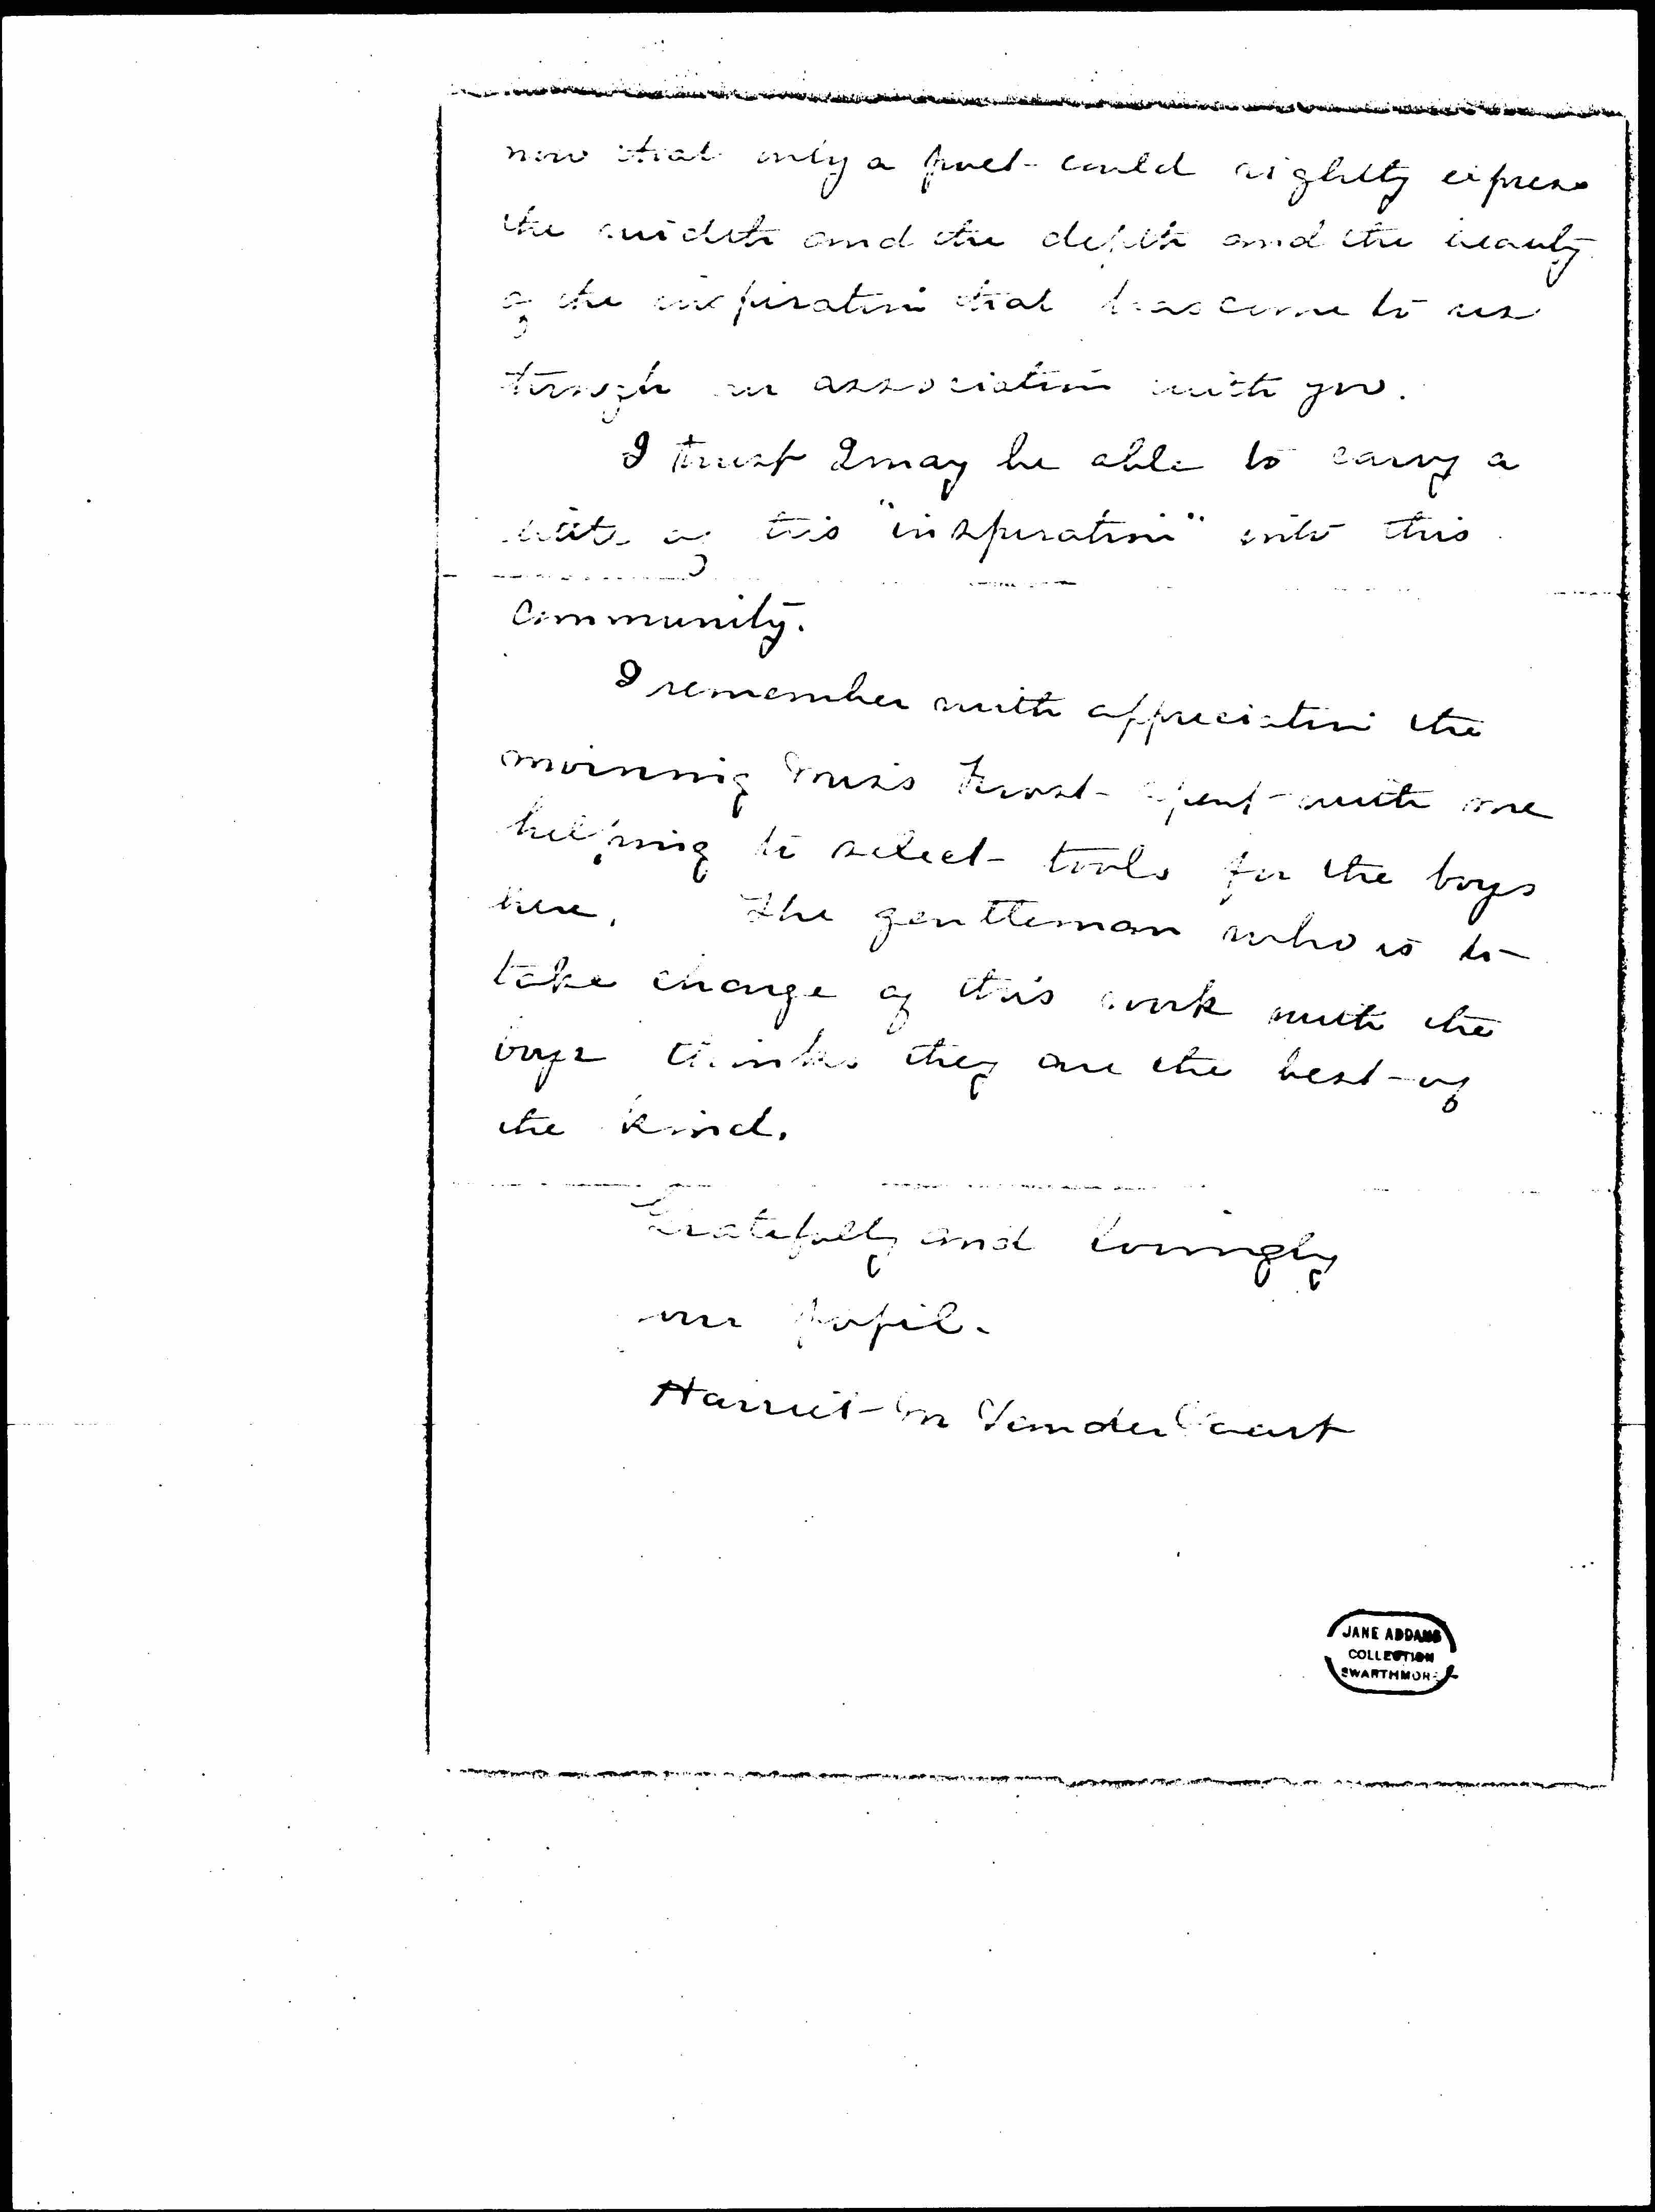 now that only a poet could rightly express
the width and the depth and the beauty
of the inspiration that has come to us
through our association with you.
I trust I may be able to carry a
little of this "inspiration" into this
community.
I remember with appreciation the
morning Miss Frost spent with me
helping to select tools for the boys
here. The gentleman who is to
take charge of this work with the
boys thinks they are the best of
the kind.
Gratefully and lovingly
our pupil.
Harriet M Van der Vaart
JANE ADDAMS
COLLECTION
SWARTHMORE